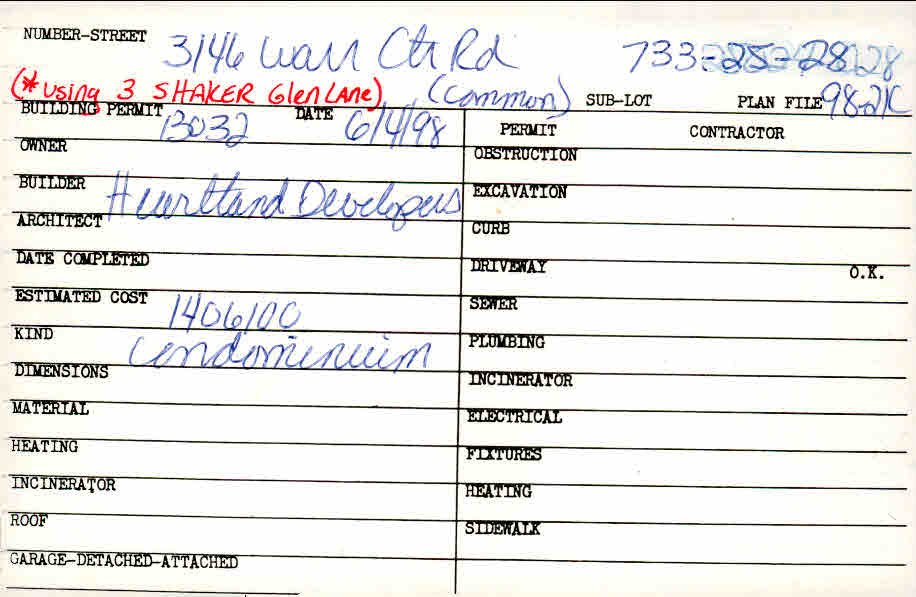 NUMBER-STREET 3146 Warr Ctr Rd 733-25-28
(*using 3 SHAKER Glen Lane) (Common) SUB-LOT PLAN FILE 98-21C
BUILDING PERMIT 13032 DATE 6/4/98 PERMIT CONTRACTOR
OWNER OBSTRUCTION
BUILDER Heartland Developers EXCAVATION
ARCHITECT CURB
DATE COMPLETED DRIVEWAY O.K.
ESTIMATED COST 1406100 SEWER
KIND Condominuim PLUMBING
DIMENSIONS INCINERATOR
MATERIAL ELECTRICAL
HEATING FIXTURES
INCINERATOR HEATING
ROOF SIDEWALK
GARAGE-DETACHED-ATTACHED